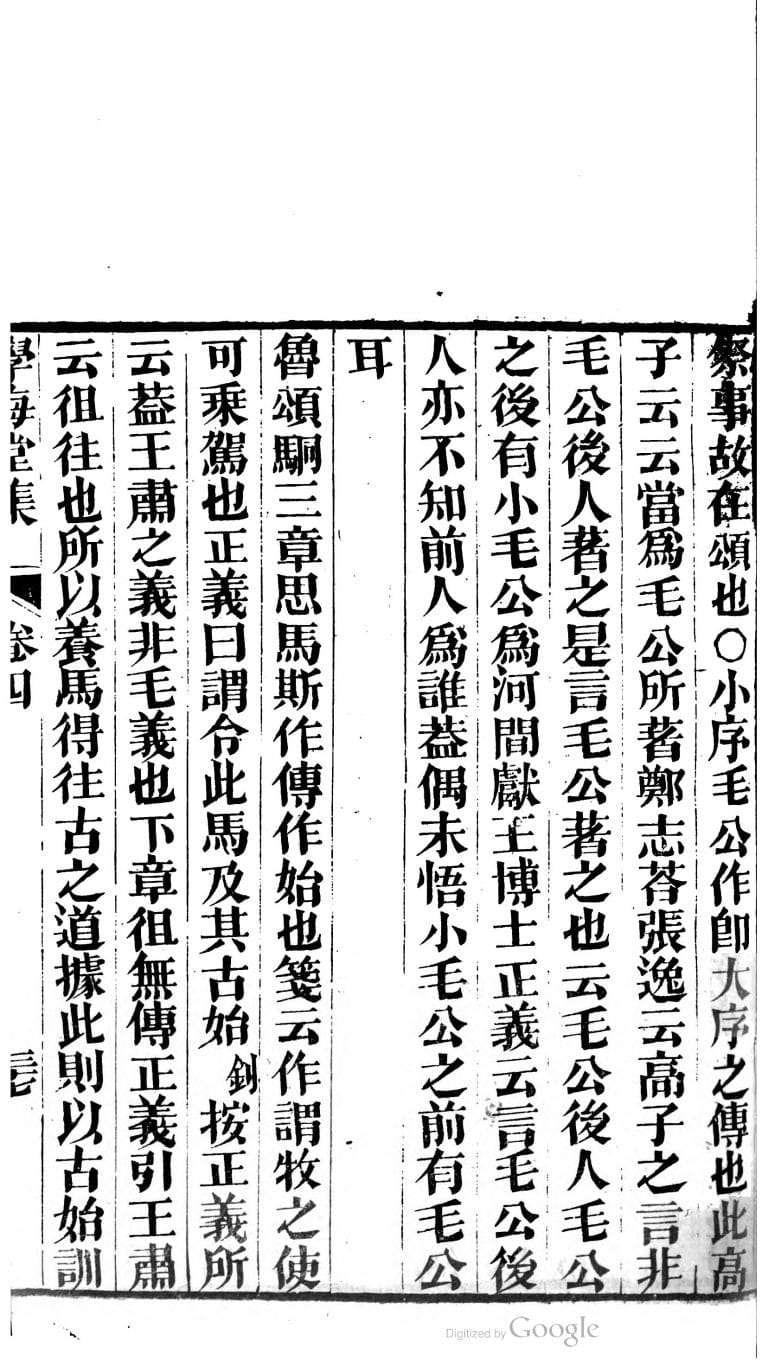 祭事故在頌也○小序毛公作卽大序之傳也此高
子云云當爲毛公所著鄭志荅張逸云高子之言非
毛公後人著之是言毛公著之也云毛公後人毛公
之後有小毛公爲河間獻王博士正義云言毛公後
人亦不知前人爲誰葢偶未悟小毛公之前有毛公
耳
魯頌駉三章思馬斯作傳作始也箋云作謂牧之使
可乘駕也正義曰謂令此馬及其古始釗按正義所
云葢王肅之義非毛義也下章徂無傳正義引王肅
云徂往也所以養馬得往古之道據此則以古始訓
學海堂集
卷四
Digitized by Google